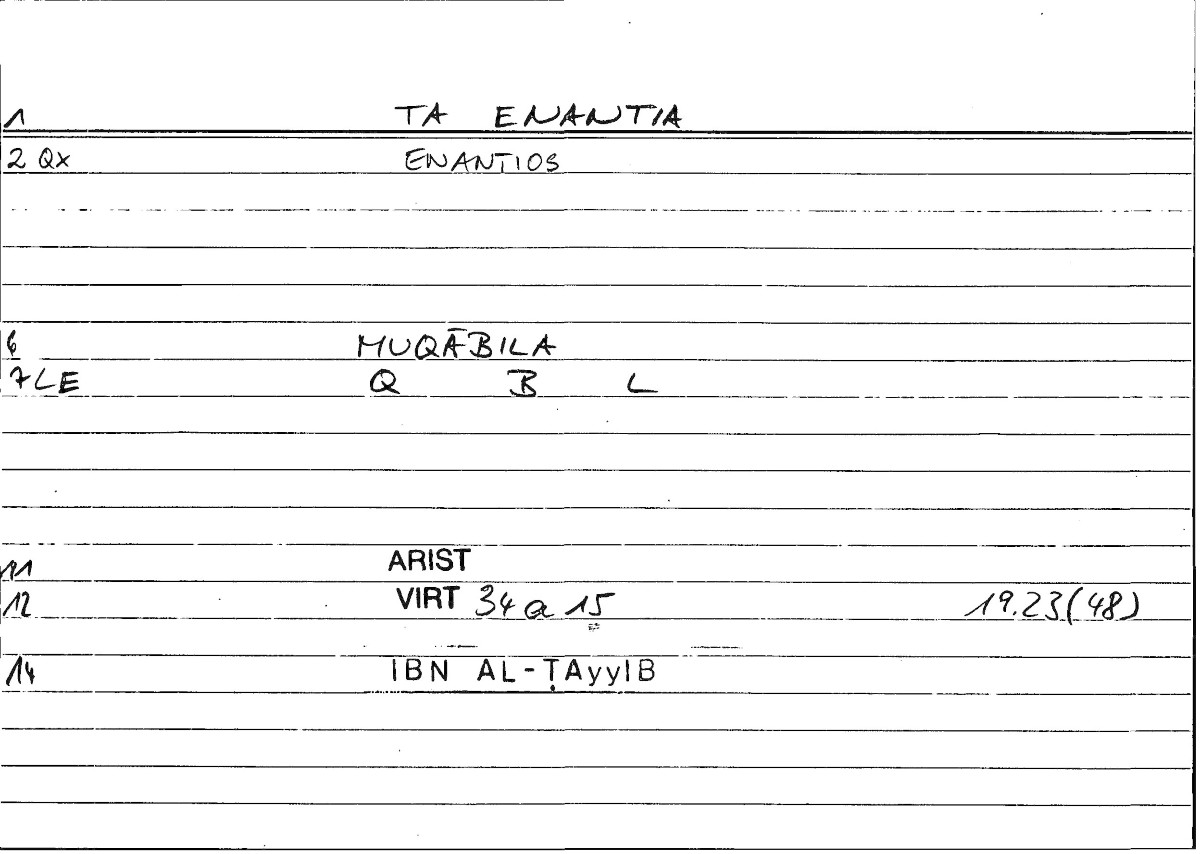 1 TA ENANTIA
2 Qx ENANTIOS
6 MUQĀBILA
7 LE Q B L
11 ARIST
12 VIRT 34 a 15 19.23(48)
14 IBN AL-ṬAyyIB